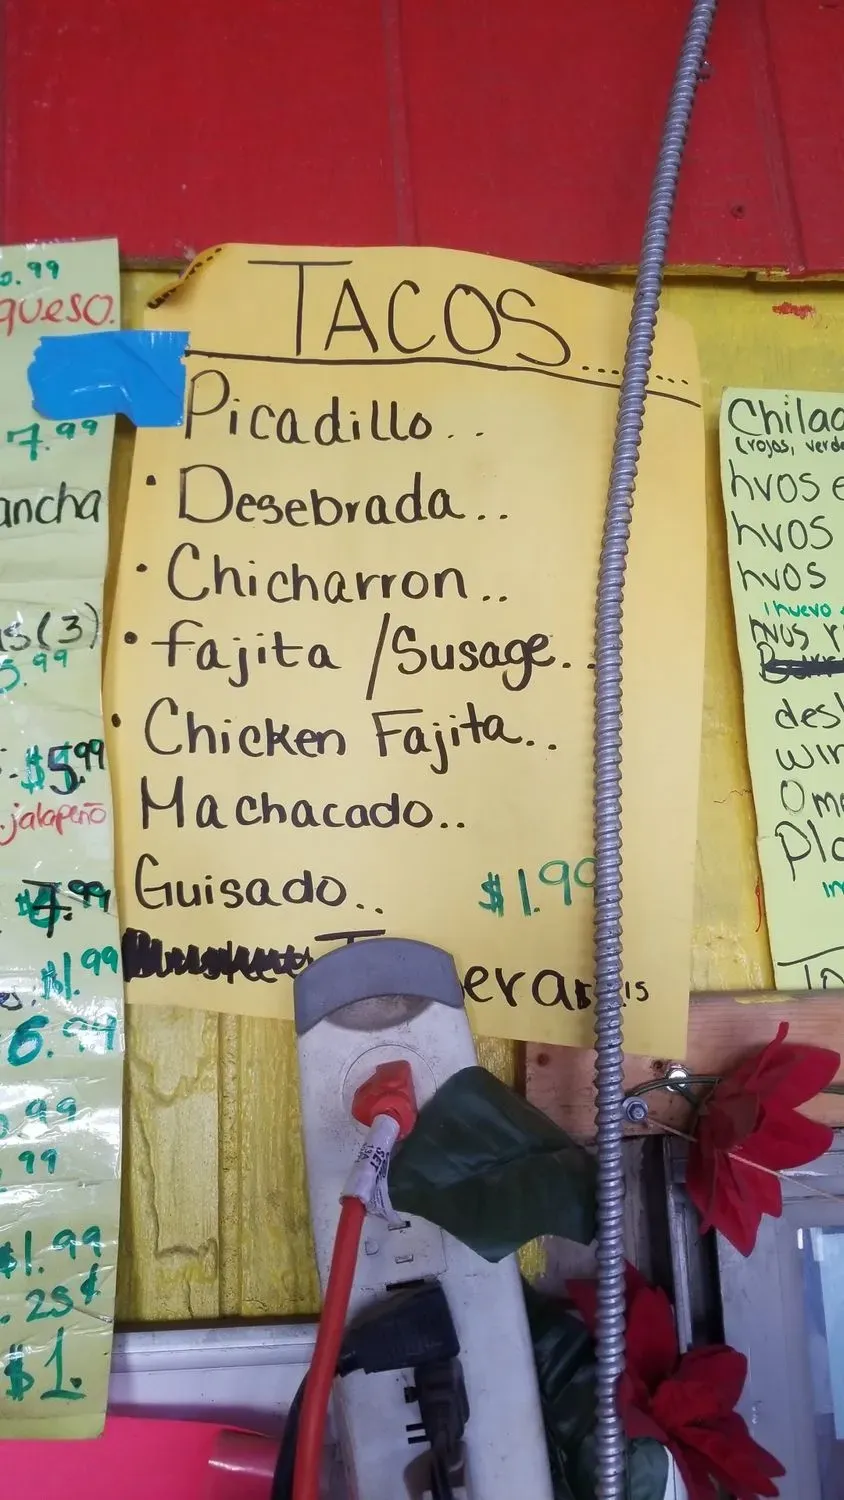 0.99
queso.
7.99
ancha
s(3)
5.99
$5.99
.jalapeño
4.99
$1.99
6.99
.99
.99
$1.99
.25¢
$1.
TACOS.....
Picadillo..
• Desebrada..
• Chicharron..
• fajita /Susage..
• Chicken Fajita..
Machacado..
Guisado.. $1.99
15
Chilaq
(rojos, verde
hvos e
hvos
hvos
1 huevo
hvos r
desh
win
Ome
Pla